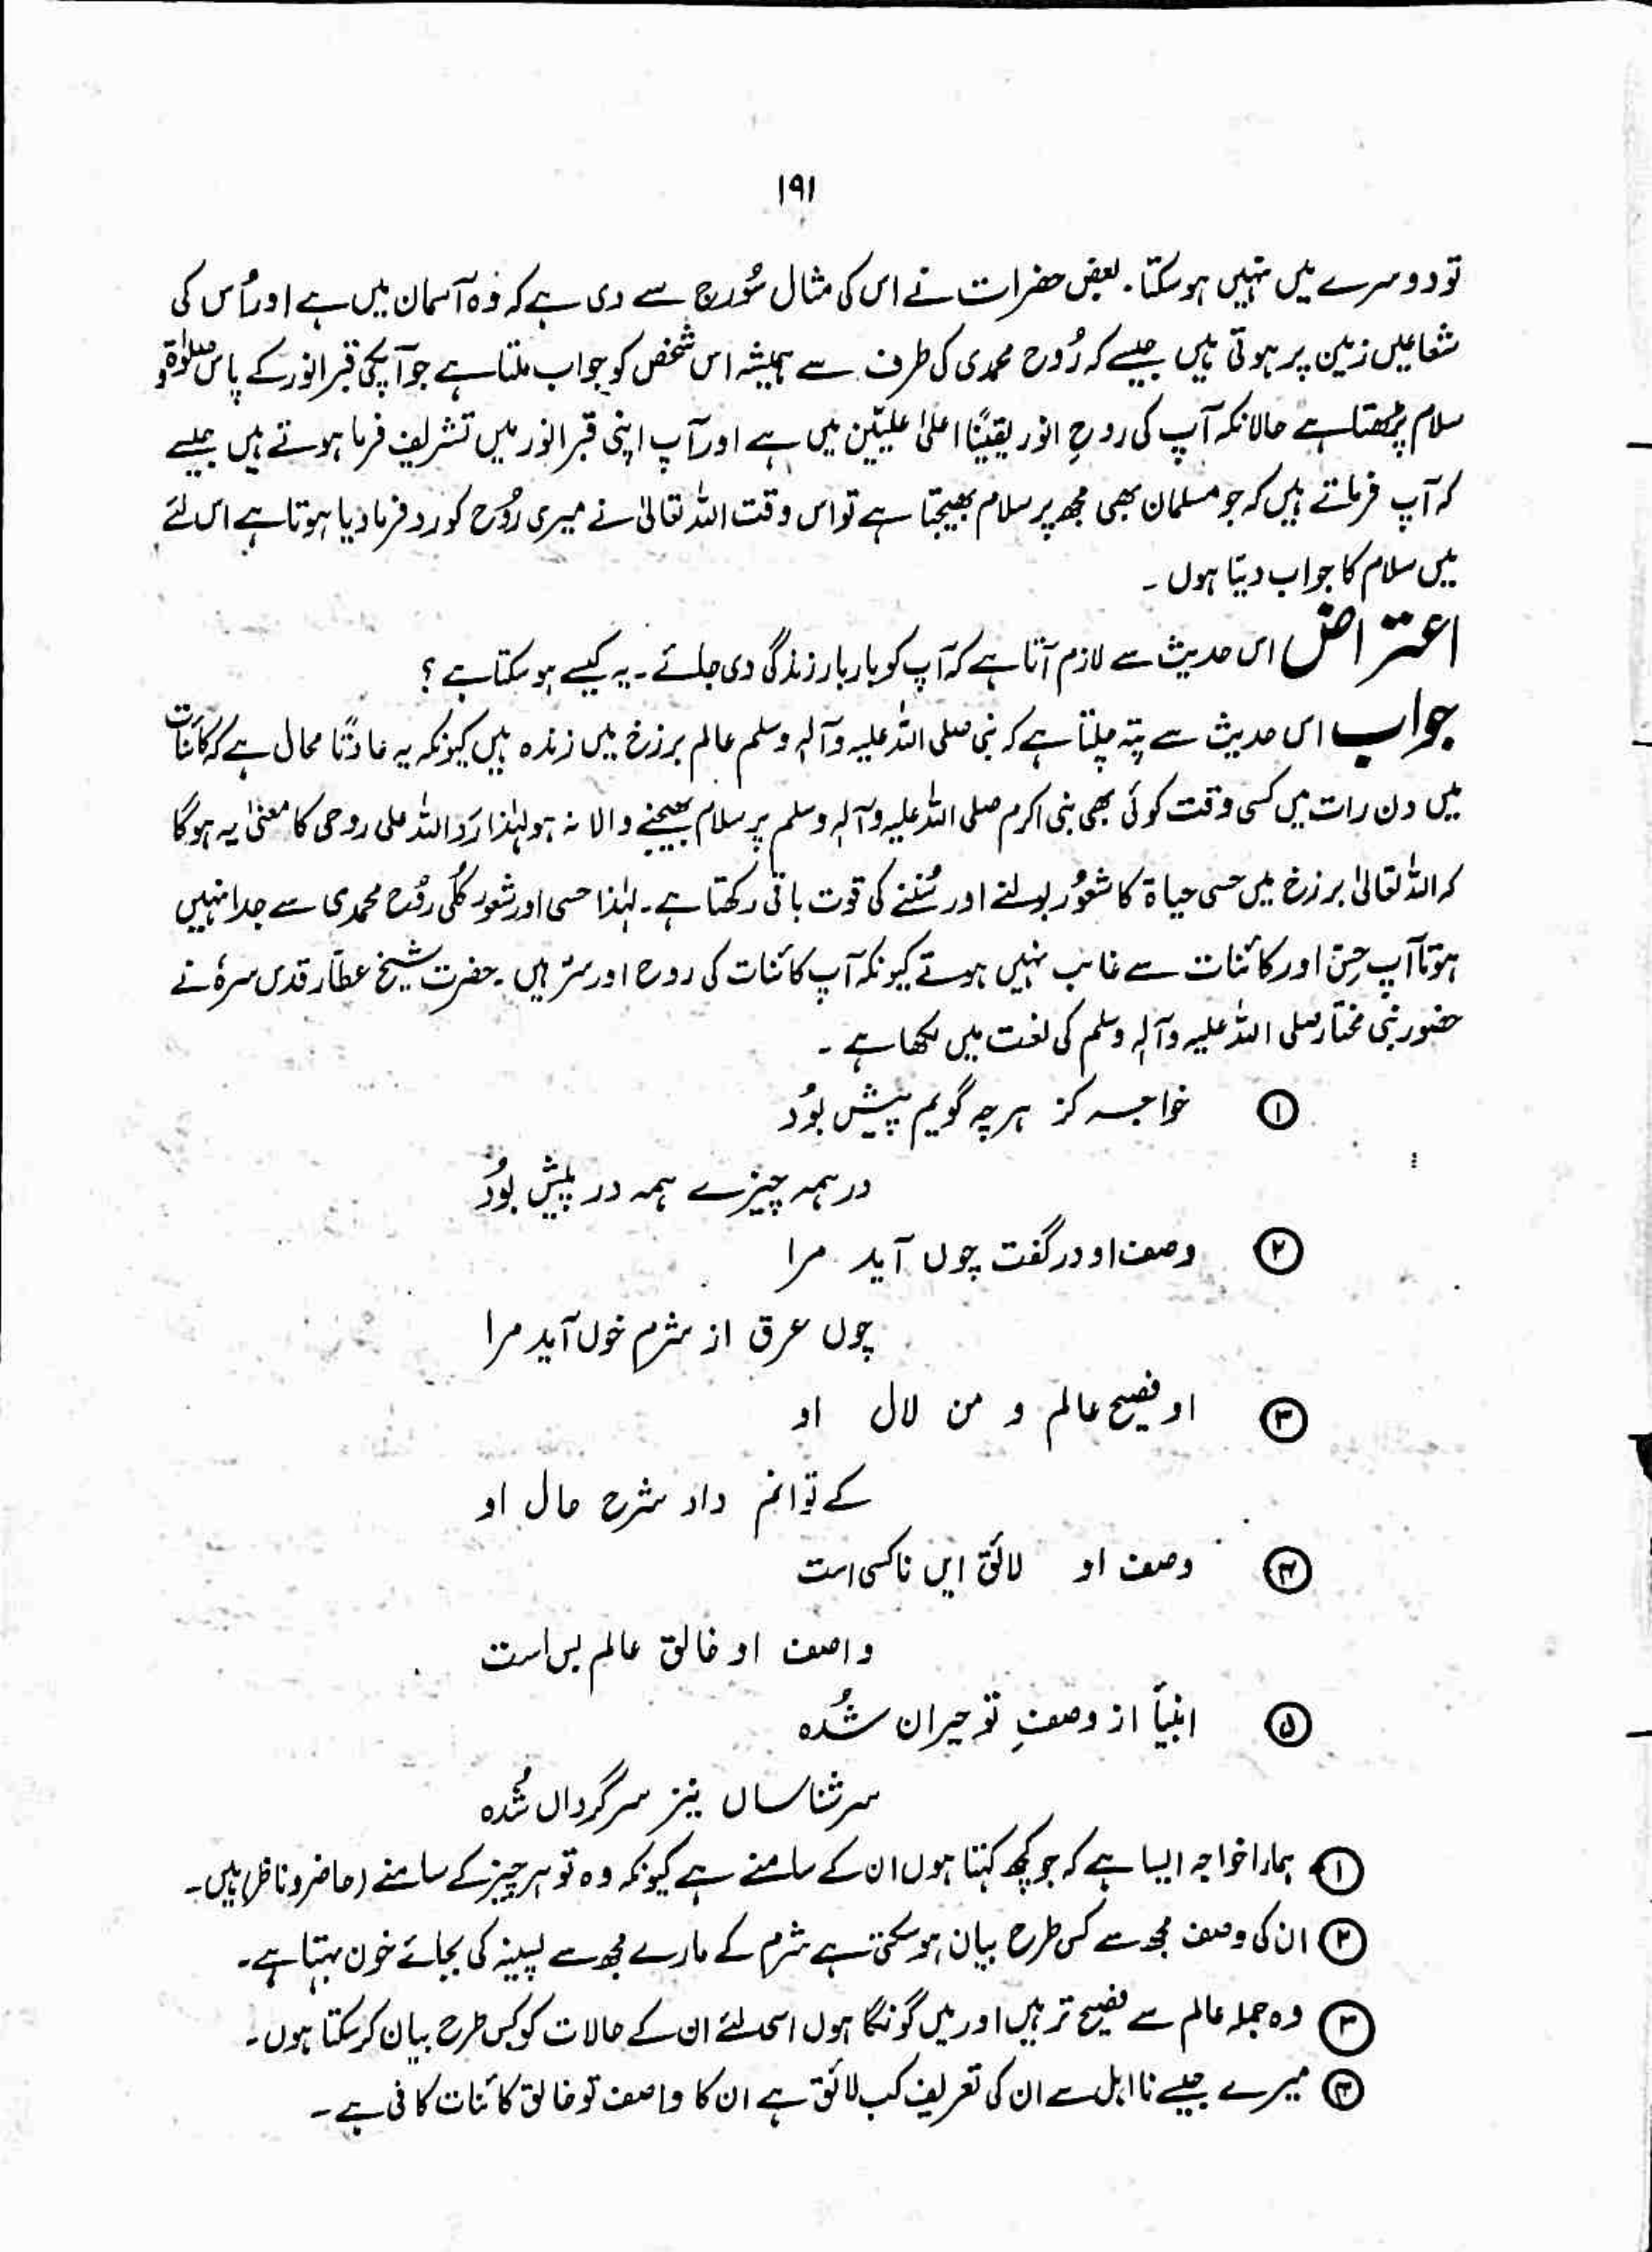 ۱۹۱
تو دوسرے میں نہیں ہو سکتا۔ بعض حضرات نے اس کی مثال سُورج سے دی ہے کہ وُہ آسمان میں ہے اور اُس کی
شعاعیں زمین پر ہوتی ہیں جیسے کہ رُوح محمدی کی طرف سے ہمیشہ اس شخص کو جواب ملتا ہے جو آپکی قبر انور کے پاس صلوٰۃ و
سلام پڑھتا ہے حالانکہ آپ کی روحِ انور یقینًا اعلیٰ علییّن میں ہے اور آپ اپنی قبر انور میں تشریف فرما ہوتے ہیں جیسے
کہ آپ فرماتے ہیں کہ جو مسلمان بھی مجھ پر سلام بھیجتا ہے تو اس وقت اللہ تعالیٰ نے میری رُوح کو رد فرما دیا ہوتا ہے اس لئے
میں سلام کا جواب دیتا ہوں ۔
اعتراض اس حدیث سے لازم آتا ہے کہ آپ کو بار بار زندگی دی جائے ۔ یہ کیسے ہو سکتا ہے ؟
جواب اس حدیث سے پتہ چلتا ہے کہ نبی صلی اللہ علیہ وآلہٖ وسلم عالم برزخ میں زندہ ہیں کیونکہ یہ عادتًا محال ہے کہ کائنات
میں دن رات میں کسی وقت کوئی بھی نبی اکرم صلی اللہ علیہ وآلہٖ وسلم پر سلام بھیجنے والا نہ ہو لہٰذا رَد اللہ علی روحی کا معنیٰ یہ ہوگا
کہ اللہ تعالیٰ برزخ میں حسی حیاۃ کا شعوُر بولنے اور سُننے کی قوت باقی رکھتا ہے ۔ لہٰذا حسی اور شعور کُلّی رُوح محمدی سے جدا نہیں
ہوتا آپ حِسّ اور کائنات سے غائب نہیں ہوتے کیونکہ آپ کائنات کی روح اور سرّ ہیں ۔ حضرت شیخ عطّار قدس سرہٗ نے
حضور نبی مختار صلی اللہ علیہ وآلہٖ وسلم کی نعت میں لکھا ہے ۔
۱ خواجہ کز ہر چہ گویم پیش بوُد
در ہمہ چیزے ہمہ در پیش بوُد
۲ وصف او در گفت چوں آید مرا
چوں عرق از شرم خوں آید مرا
۳ او فصیح عالم و من لال او
کے توانم داد شرح حال او
۴ وصف او لائق ایں ناکس است
واصف او خالق عالم بس است
۵ انبیأ از وصفِ تو حیران شُدہ
سرشناساں نیز سرگرداں شُدہ
۱ ہمارا خواجہ ایسا ہے کہ جو کچھ کہتا ہوں ان کے سامنے ہے کیونکہ وہ تو ہر چیز کے سامنے (حاضر و ناظر) ہیں ۔
۲ ان کی وصف مجھ سے کس طرح بیان ہو سکتی ہے شرم کے مارے مجھ سے پسینہ کی بجائے خون بہتا ہے ۔
۳ وہ جملہ عالم سے فصیح تر ہیں اور میں گونگا ہوں اسی لئے ان کے حالات کو کس طرح بیان کر سکتا ہوں ۔
۴ میرے جیسے نا اہل سے ان کی تعریف کب لائق ہے ان کا واصف تو خالق کائنات کافی ہے ۔